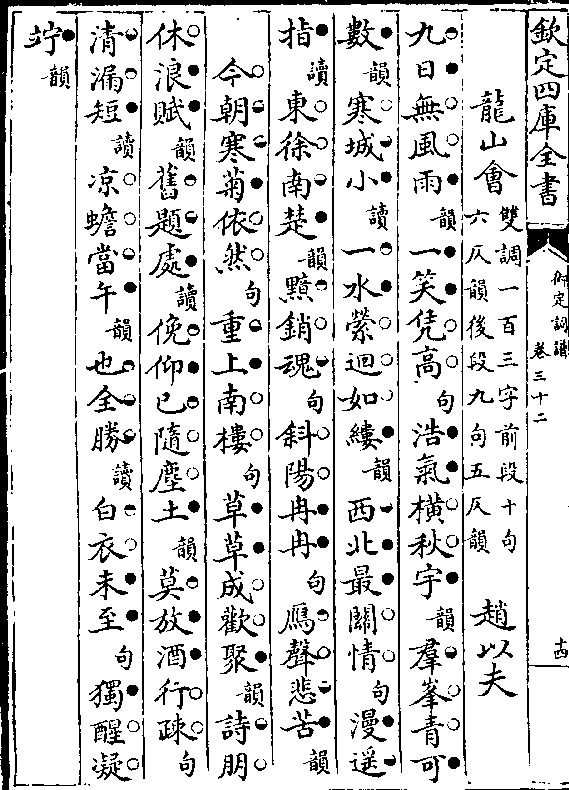 欽定四庫全書
御定詞譜
卷三十二
十四
龍山會 雙調一百三字前段十句六仄韻後段九句五仄韻 趙以夫
九日無風雨韻一笑凭高句浩氣横秋宇韻羣峯青可
數韻寒城小讀一水縈迴如縷韻西北最關情句漫遥
指讀東徐南楚韻黯銷魂句斜陽冉冉句鴈聲悲苦韻
今朝寒菊依然句重上南樓句草草成歡聚韻詩朋
休浪賦韻舊題處讀俛仰已隨塵土韻莫放酒行疎句
清漏短讀凉蟾當午韻也全勝讀白衣未至句獨醒凝
竚韻